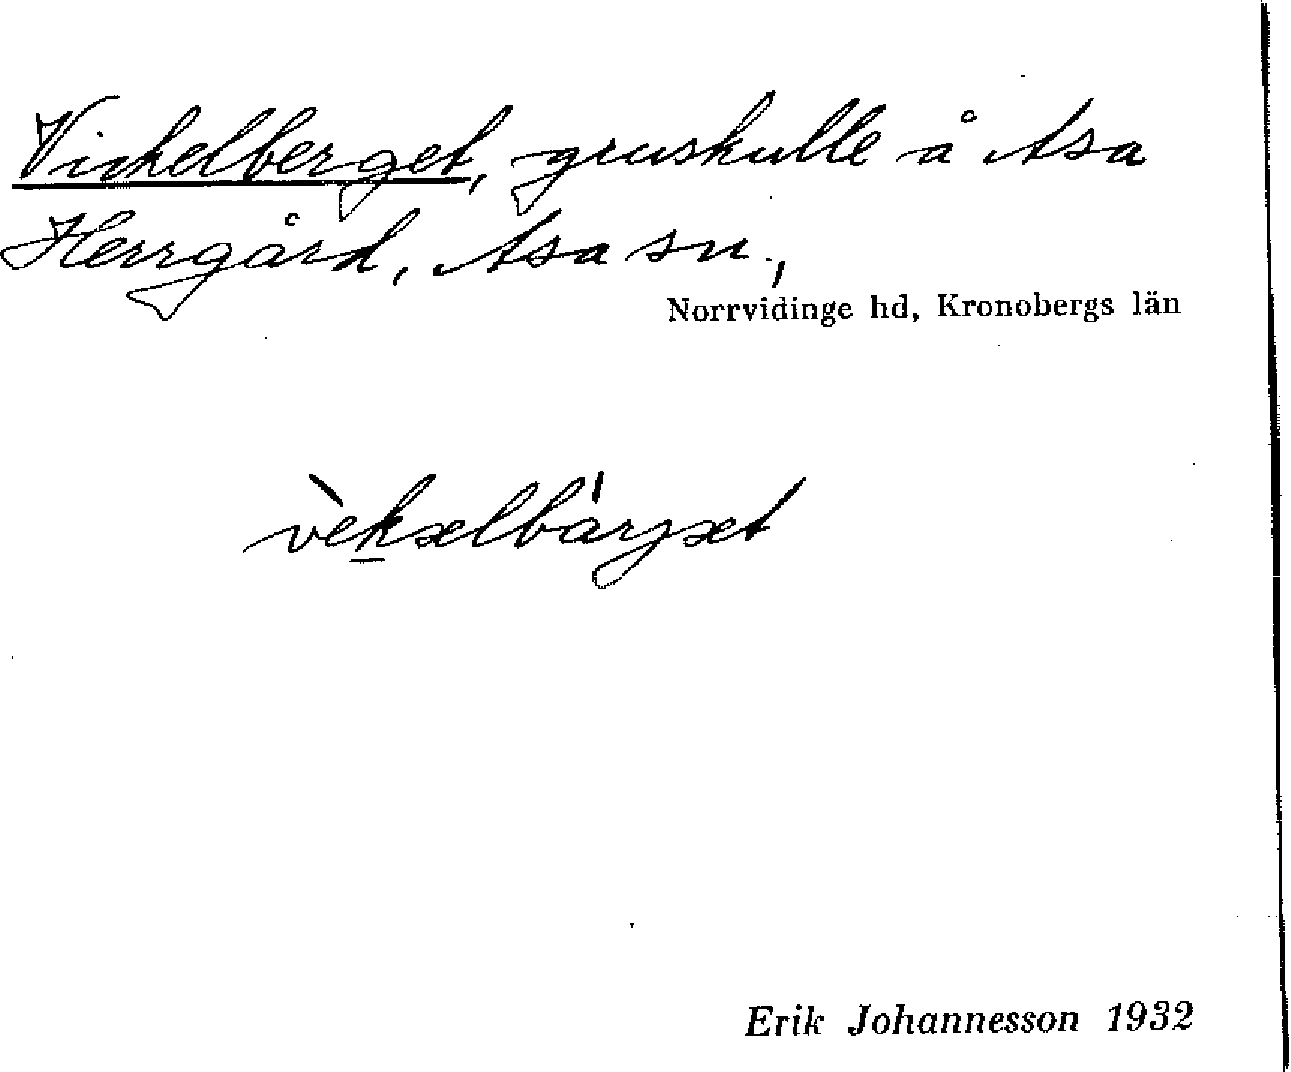 Vickelberget, gruskulle å Asa
Herrgård, Asa sn.,
Norrvidinge hd, Kronobergs län
vèkælbáryæt
Erik Johannesson 1932